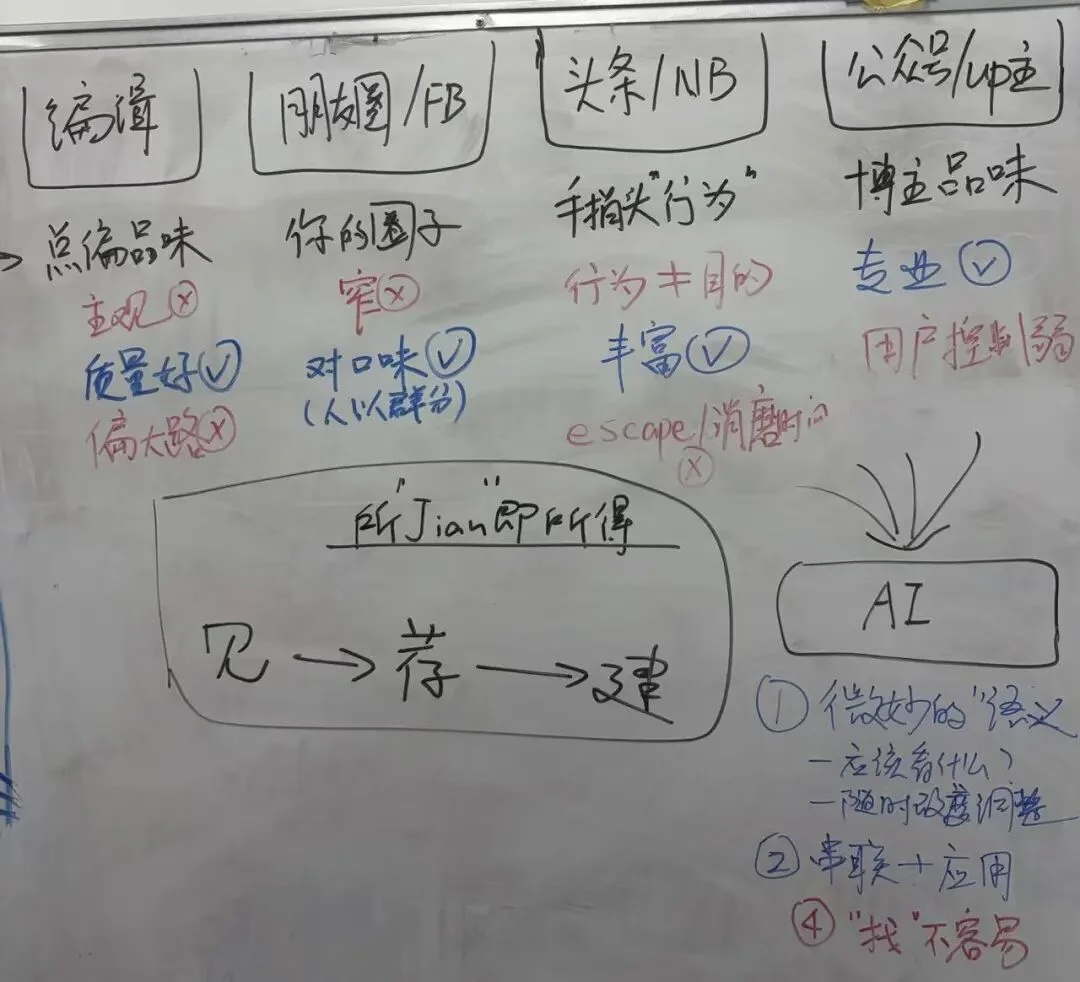 编辑
总编品味
主观 ⓧ
质量好 ✓
偏大路 ⓧ
朋友圈/FB
你的圈子
窄 ⓧ
对口味 ✓
(人以群分)
头条/NB
手指头"行为"
行为≠目的
丰富 ✓
escape/消磨时间
ⓧ
公众号/up主
博主品味
专业 ✓
用户控制弱
所"Jian"即所得
见 → 荐 → 建
AI
① 微妙的"语义
- 应该看什么?
- 随时调整
② 串联+应用
④ "找"不容易